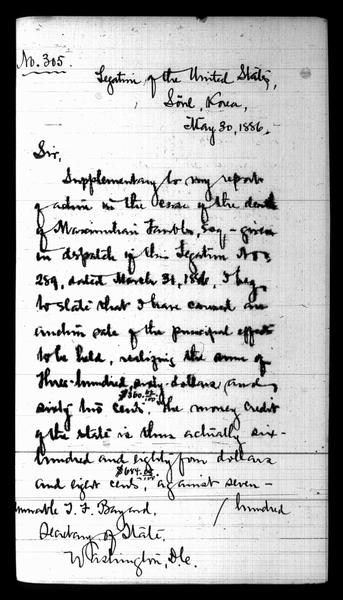 No. 305.
Legation of the United States,
Söul, Korea,
May 30, 1886.
Sir,
Supplementary to my report
of action in the case of the death
of Maximilian Taubles, Esq - given
in dispatch of this Legation No.
289, dated March 31, 1886, I beg
to state that I have caused an
auction sale of the principal effects
to be held, realizing the sum of
three-hundred, sixty-dollars and
$360.62/100
sixty two cents. The money credit
of the state is thus actually six-
hundred and eighty four dollars
$684.08/100
and eight cents, against seven-
Honorable T. F. Bayard, / hundred
Secretary of State,
Washington, D.C.